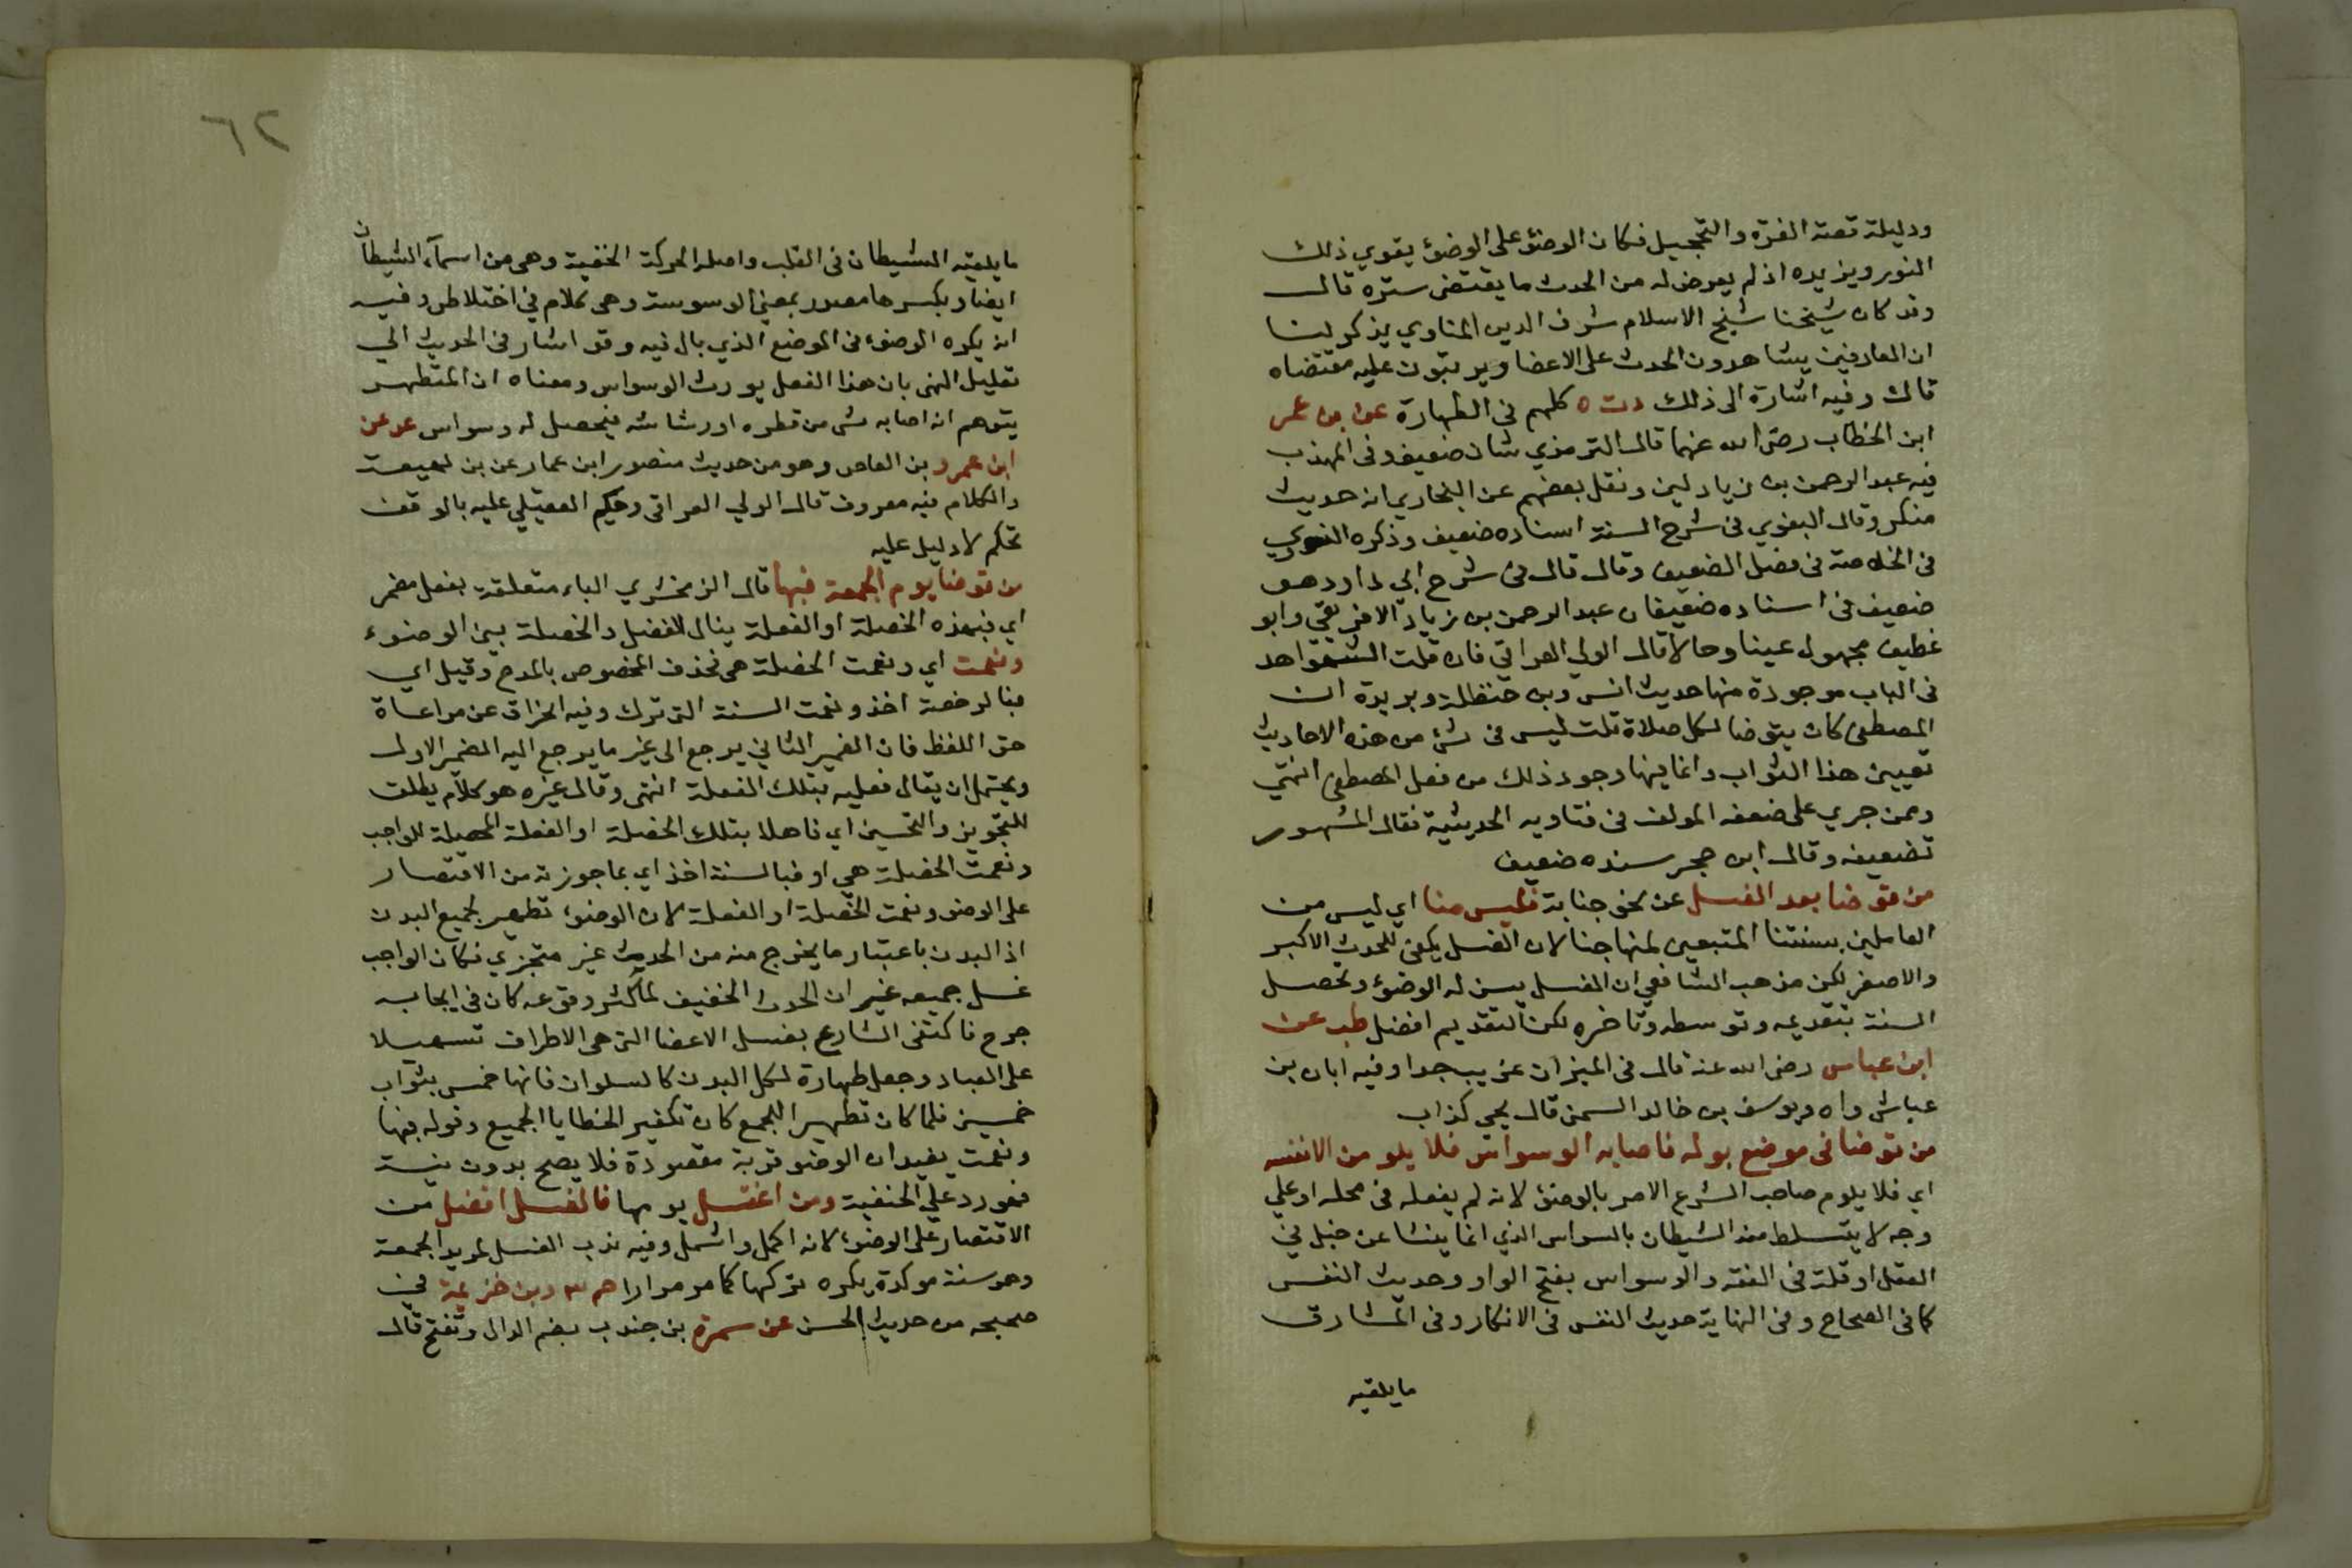 ودليلة قصة الغرة والتحجيل فكان الوضؤ على الوضؤ يقوي ذلك
النور ويزيده اذ لم يعرض له من الحدث ما يقتضى ستره قال
وقد كان شيخنا شيخ الاسلام شرف الدين المناوي يذكر لنا
ان العارفين يشاهدون الحدث على الاعضا ويرتبون عليه مقتضاه
قال وفيه اشارة الى ذلك دت ه كلهم في الطهارة عن بن عمر
ابن الخطاب رضى الله عنهما قال الترمذي شان ضعيف وفى المهذب
فيه عبد الرحمن بن زياد لين ونقل بعضهم عن البخاري انه حديث
منكر وقال البغوي فى شرح السنة اسناده ضعيف وذكره النووي
فى الخلاصة فى فصل الضعيف وقال قال فى شرح ابي داود هو
ضعيف فى اسناده ضعيفان عبد الرحمن بن زياد الافريقي وابو
غطيف مجهول عينا وحالا قال الولي العراقي فان قلت الشواهد
فى الباب موجودة منها حديث انس وبن حنظلة وبريدة ان
المصطفى كان يتوضا لكل صلاة قلت ليس فى شئ من هذه الاحاديث
تعيين هذا الثواب وانما فيها وجود ذلك من فعل المصطفى انتهي
وممن جري على ضعفه المولف فى فتاويه الحديثية فقال المشهور
تضعيفه وقال ابن حجر سنده ضعيف
من توضا بعد الغسل عن نحو جنابة فليس منا اي ليس من
العاملين بسنتنا المتبعين لمنهاجنا لان الغسل يكفى للحدث الاكبر
والاصغر لكن مذهب الشافعي ان الغسل يسن له الوضؤ وتحصل
السنة بتقديمه وتوسطه وتاخره لكن التقديم افضل طب عن
ابن عباس رضى الله عنه قال فى الميزان غريب جدا وفيه ابان بن
عياش واه ويوسف بن خالد السمن قال يحي كذاب
من توضا فى موضع بوله فاصابه الوسواس فلا يلو من الانفسه
اي فلا يلوم صاحب الشرع الامر بالوضؤ لانه لم يفعله فى محله او علي
وجه لا يتسلط معه الشيطان بالسواس الذي انما ينشا عن خبل في
العقل او قلة فى الفقه والوسواس بفتح الواو وحديث النفس
كما فى الصحاح وفى النهاية حديث النفس فى الافكار وفى المشارق
ما يلقيه
٦٢
ما يلقيه الشيطان فى القلب واصله الحركة الخفية وهى من اسمآء الشيطان
ايضا وبكسرها مصدر بمعنى الوسوسة وهى كلام في اختلاط وفيه
انه يكره الوضوء فى الموضع الذي بال فيه وقد اشار فى الحديث الي
تعليل النهى بان هذا الفعل يورث الوسواس ومعناه ان المتطهر
يتوهم انه اصابه شى من قطره او رشاشه فيحصل له وسواس عد عن
ابن عمرو بن العاص وهو من حديث منصور ابن عمار عن بن لهيعة
والكلام فيه معروف قال الولي العراقى وحكم العقيلي عليه بالوقف
تحكم لا دليل عليه
من توضا يوم الجمعة فبها قال الزمخشري الباء متعلقة بفعل مضمر
اي فبهذه الخصلة او الفعلة ينال الفضل والخصلة يعنى الوضوء
ونعمت اي ونعمت الخصلة هى فحذف المخصوص بالمدح وقيل اي
فبالرخصة اخذ ونعمت السنة التى ترك وفيه انحراف عن مراعاة
حق اللفظ فان الضمير الثاني يرجع الى غير ما يرجع اليه الضمير الاول
ويحتمل ان يقال فعليه بتلك الفعلة انتهى وقال غيره هو كلام يطلق
للتجويز والتحسين اي فاهلا بتلك الخصلة او الفعلة المحصلة للواجب
ونعمت الخصلة هى او فبالسنة اخذ اي بما جوزته من الاقتصار
على الوضو ونعمت الخصلة او الفعلة لان الوضوء تطهير لجميع البدن
اذ البدن باعتبار ما يخرج منه من الحديث غير متجزي فكان الواجب
غسل جميعه غير ان الحدث الخفيف لما كثر وقوعه كان فى ايجابه
حرج فاكتفى الشارع بغسل الاعضا التى هى الاطراف تسهيلا
على العباد وجعل طهارة لكل البدن كالسلوان فانها خمس بثواب
خمسين فلما كان تطهير الجمع كان تكفير الخطايا الجميع وقوله فبها
ونعمت يفيد ان الوضو قربة مقصودة فلا يصح بدون نية
فهو رد علي الحنفية ومن اغتسل يومها فالغسل افضل من
الاقتصار على الوضوء لانه اكمل واشمل وفيه ندب الغسل لمريد الجمعة
وهو سنة موكدة يكره تركها كما مر مرارا حم ٣ وبن خزيمة في
صحيحه من حديث الحسن عن سمرة بن جندب بضم الدال وتفتح قال